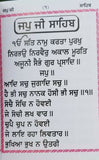 ਜਪੁ ਜੀ ਸਾਹਿਬ
ੴ ਸਤਿ ਨਾਮੁ ਕਰਤਾ ਪੁਰਖੁ
ਨਿਰਭਉ ਨਿਰਵੈਰੁ ਅਕਾਲ ਮੂਰਤਿ
ਅਜੂਨੀ ਸੈਭੰ ਗੁਰ ਪ੍ਰਸਾਦਿ ॥
॥ ਜਪੁ ॥
ਆਦਿ ਸਚੁ ਜੁਗਾਦਿ ਸਚੁ ॥
ਹੈ ਭੀ ਸਚੁ ਨਾਨਕ ਹੋਸੀ ਭੀ ਸਚੁ ॥੧॥
ਸੋਚੈ ਸੋਚਿ ਨ ਹੋਵਈ
ਜੇ ਸੋਚੀ ਲਖ ਵਾਰ ॥
ਚੁਪੈ ਚੁਪ ਨ ਹੋਵਈ
ਜੇ ਲਾਇ ਰਹਾ ਲਿਵਤਾਰ ॥
ਭੁਖਿਆ ਭੁਖ ਨ ਉਤਰੀ